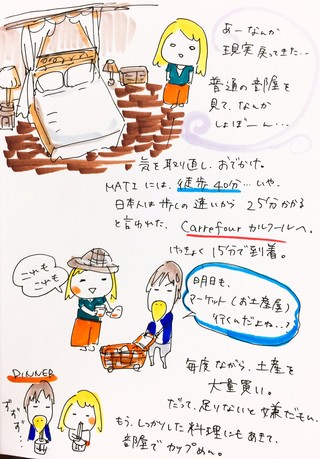 あーなんか
現実戻ってきた…
普通の部屋を
見て、なんか
しょぼーん…
気を取り直し、おでかけ。
MATIには、徒歩40分…いや、
日本人は歩くの速いから25分かかる
と言われた、Carrefourカルフールへ。
けっきょく15分で到着。
これも
これも
明日も、
マーケット(お土産屋)
行くんだよね…?
毎度ながら、土産を
大量買い。
だって、足りないと嫌だもん。
DINNER
ずずず…
もう、しっかりした料理にもあきて、
部屋でカップめん。